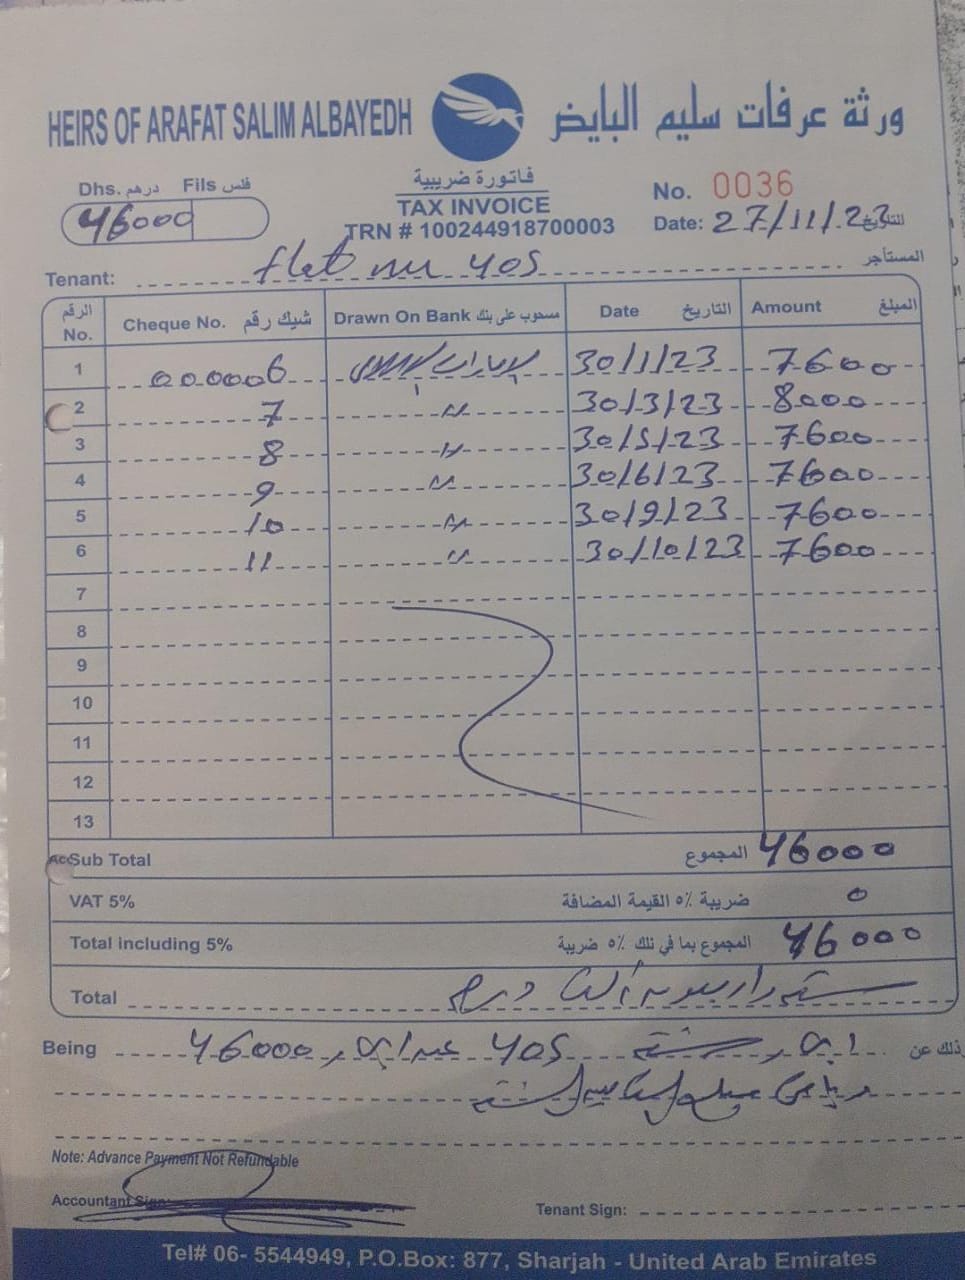 HEIRS OF ARAFAT SALIM ALBAYEDH ورثة عرفات سليم البايض
Dhs. درهم Fils فلس
46000
فاتورة ضريبية
TAX INVOICE
TRN # 100244918700003
No. 0036
Date: 27/11/23 التاريخ
Tenant: flat 405 المستأجر
الرقم No. Cheque No. شيك رقم Drawn On Bank مسحوب على بنك Date التاريخ Amount المبلغ
1 000006 30/1/23 7600
2 7 " 30/3/23 8000
3 8 " 30/5/23 7600
4 9 " 30/6/23 7600
5 10 " 30/9/23 7600
6 11 " 30/10/23 7600
7
8
9
10
11
12
13
Sub Total المجموع 46000
VAT 5% ضريبة ٥٪ القيمة المضافة 0
Total including 5% المجموع بما في ذلك ٥٪ ضريبة 46000
Total ستة واربعون ألف درهم
Being 405 46000 وذلك عن
Note: Advance Payment Not Refundable
Accountant Sign:
Tenant Sign:
Tel# 06- 5544949, P.O.Box: 877, Sharjah - United Arab Emirates